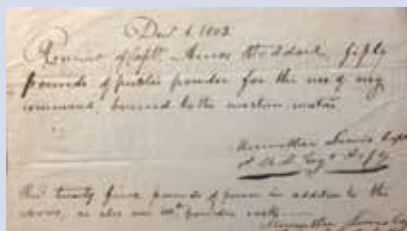 Decr 6. 1803.
Received of Capt. Amos Stoddard, fifty
pounds of public powder for the use of my
command, bound to the western waters
Meriwether Lewis Capt
1st U.S. Regt Infty
twenty five pounds of in addition to the
above, as also one powder
Meriwether Lewis Capt